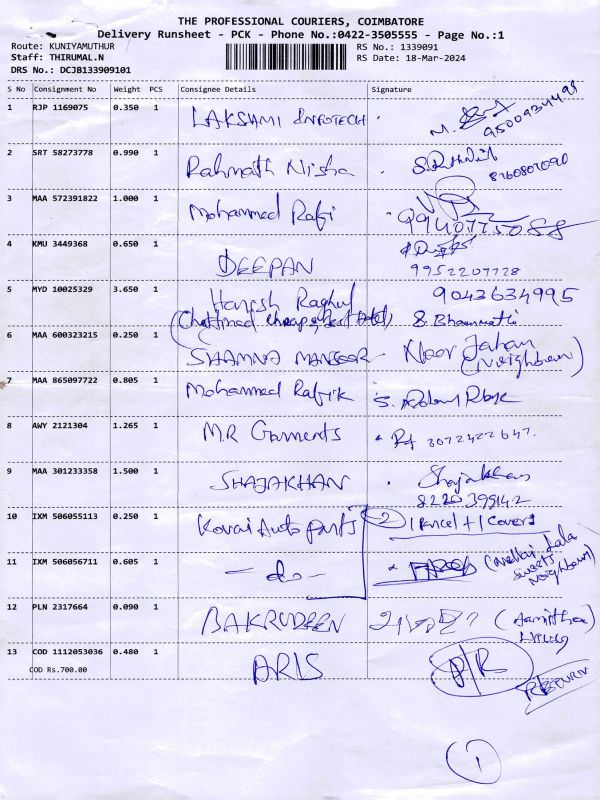 THE PROFESSIONAL COURIERS, COIMBATORE
Delivery Runsheet - PCK - Phone No.:0422-3505555 - Page No.:1
Route: KUNIYAMUTHUR
Staff: THIRUMAL.N
DRS No.: DCJB133909101
RS No.: 1339091
RS Date: 18-Mar-2024
S No Consignment No Weight PCS Consignee Details Signature
1 RJP 1169075 0.350 1 LAKSHMI INFOTECH
2 SRT 58273778 0.990 1 Rahmath Nisha
8760807090
3 MAA 572391822 1.000 1 Mohammed Rafi
4 KMU 3449368 0.650 1 DEEPAN
9952207728
5 MYD 10025329 3.650 1 Harish Raghul 9043634995
6 MAA 600323215 0.250 1 SHAMNA MANSOOR Noor Jahan
(Neighbour)
7 MAA 865097722 0.805 1 Mohammed Rafik
8 AWY 2121304 1.265 1 M.R Garments
9 MAA 301233358 1.500 1 SHAJAKHAN Shajakhan
10 IXM 506055113 0.250 1 Kovai Auto parts 2 1 Parcel + 1 Cover
11 IXM 506056711 0.605 1 - do - (Nellai Lala
Sweets
Neighbour)
12 PLN 2317664 0.090 1 BAKRUDEEN
13 COD 1112053036 0.480 1 ARIS
COD Rs.700.00
RETURN
1